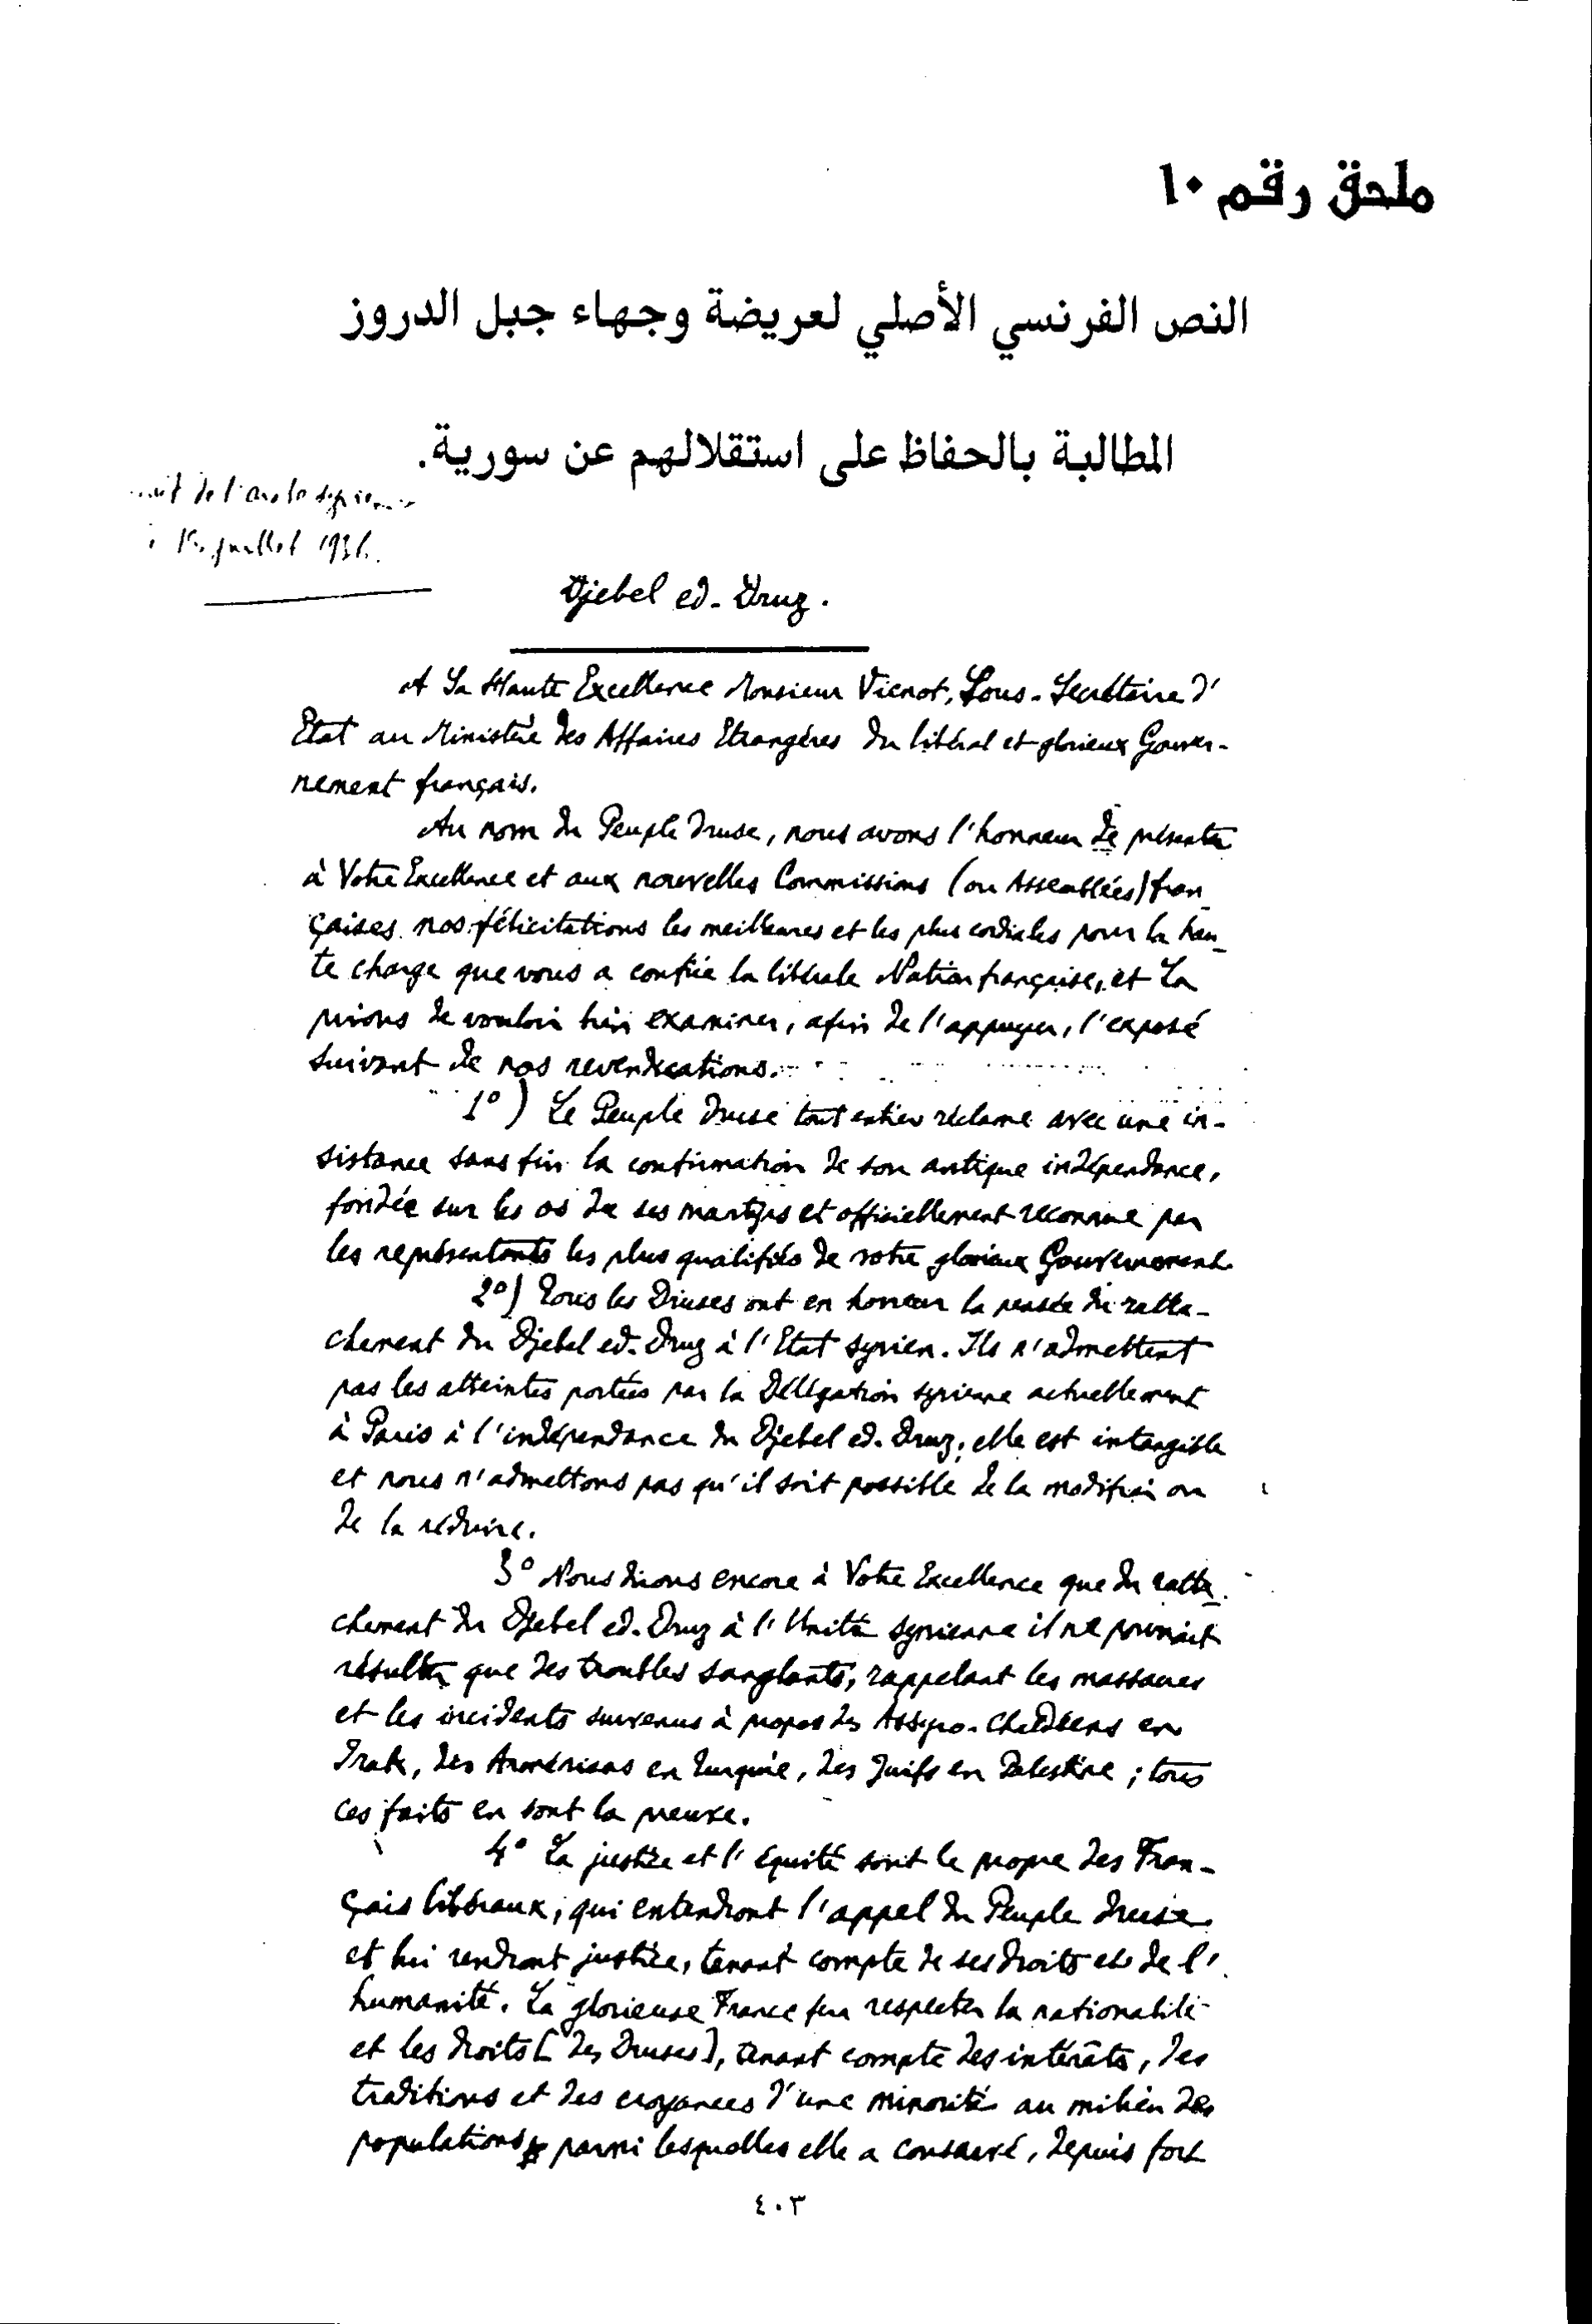 ملحق رقم ١٠
النص الفرنسي الأصلي لعريضة وجهاء جبل الدروز
المطالبة بالحفاظ على استقلالهم عن سورية.
de l'arabe
juillet 1936.
Djebel ed-Druz.
A Sa Haute Excellence Monsieur Vienot, Sous-Secrétaire d'
Etat au Ministère des Affaires Etrangères du libéral et glorieux Gouver-
nement français.
Au nom du Peuple druse, nous avons l'honneur de présenter
à Votre Excellence et aux nouvelles Commissions (ou Assemblées) fran-
çaises nos félicitations les meilleures et les plus cordiales pour la hau-
te charge que vous a confiée la libérale Nation française, et La
prions de vouloir bien examiner, afin de l'appuyer, l'exposé
suivant de nos revendications.
1°) Le Peuple druse tout entier réclame avec une in-
sistance sans fin la confirmation de son antique indépendance,
fondée sur les os de ses martyrs et officiellement reconnue par
les représentants les plus qualifiés de votre glorieux Gouvernement.
2°) Tous les Druses ont en horreur la pensée du ratta-
chement du Djebel ed-Druz à l'Etat syrien. Ils n'admettent
pas les atteintes portées par la Délégation syrienne actuellement
à Paris à l'indépendance du Djebel ed-Druz; elle est intangible
et nous n'admettons pas qu'il soit possible de la modifier ou
de la réduire.
3° Nous dirons encore à Votre Excellence que du ratta-
chement du Djebel ed-Druz à l'Unité syrienne il ne pourrait
résulter que des troubles sanglants, rappelant les massacres
et les incidents survenus à propos des Assyro-Chaldéens en
Irak, des Arméniens en Turquie, des Juifs en Palestine; tous
ces faits en sont la preuve.
4° La justice et l'équité sont le propre des Fran-
çais libéraux, qui entendront l'appel du Peuple druse
et lui rendront justice, tenant compte de ses droits et de l'
humanité. La glorieuse France fera respecter la nationalité
et les droits [des Druses], tenant compte des intérêts, des
traditions et des croyances d'une minorité au milieu des
populations parmi lesquelles elle a conservé, depuis fort
٤٠٣